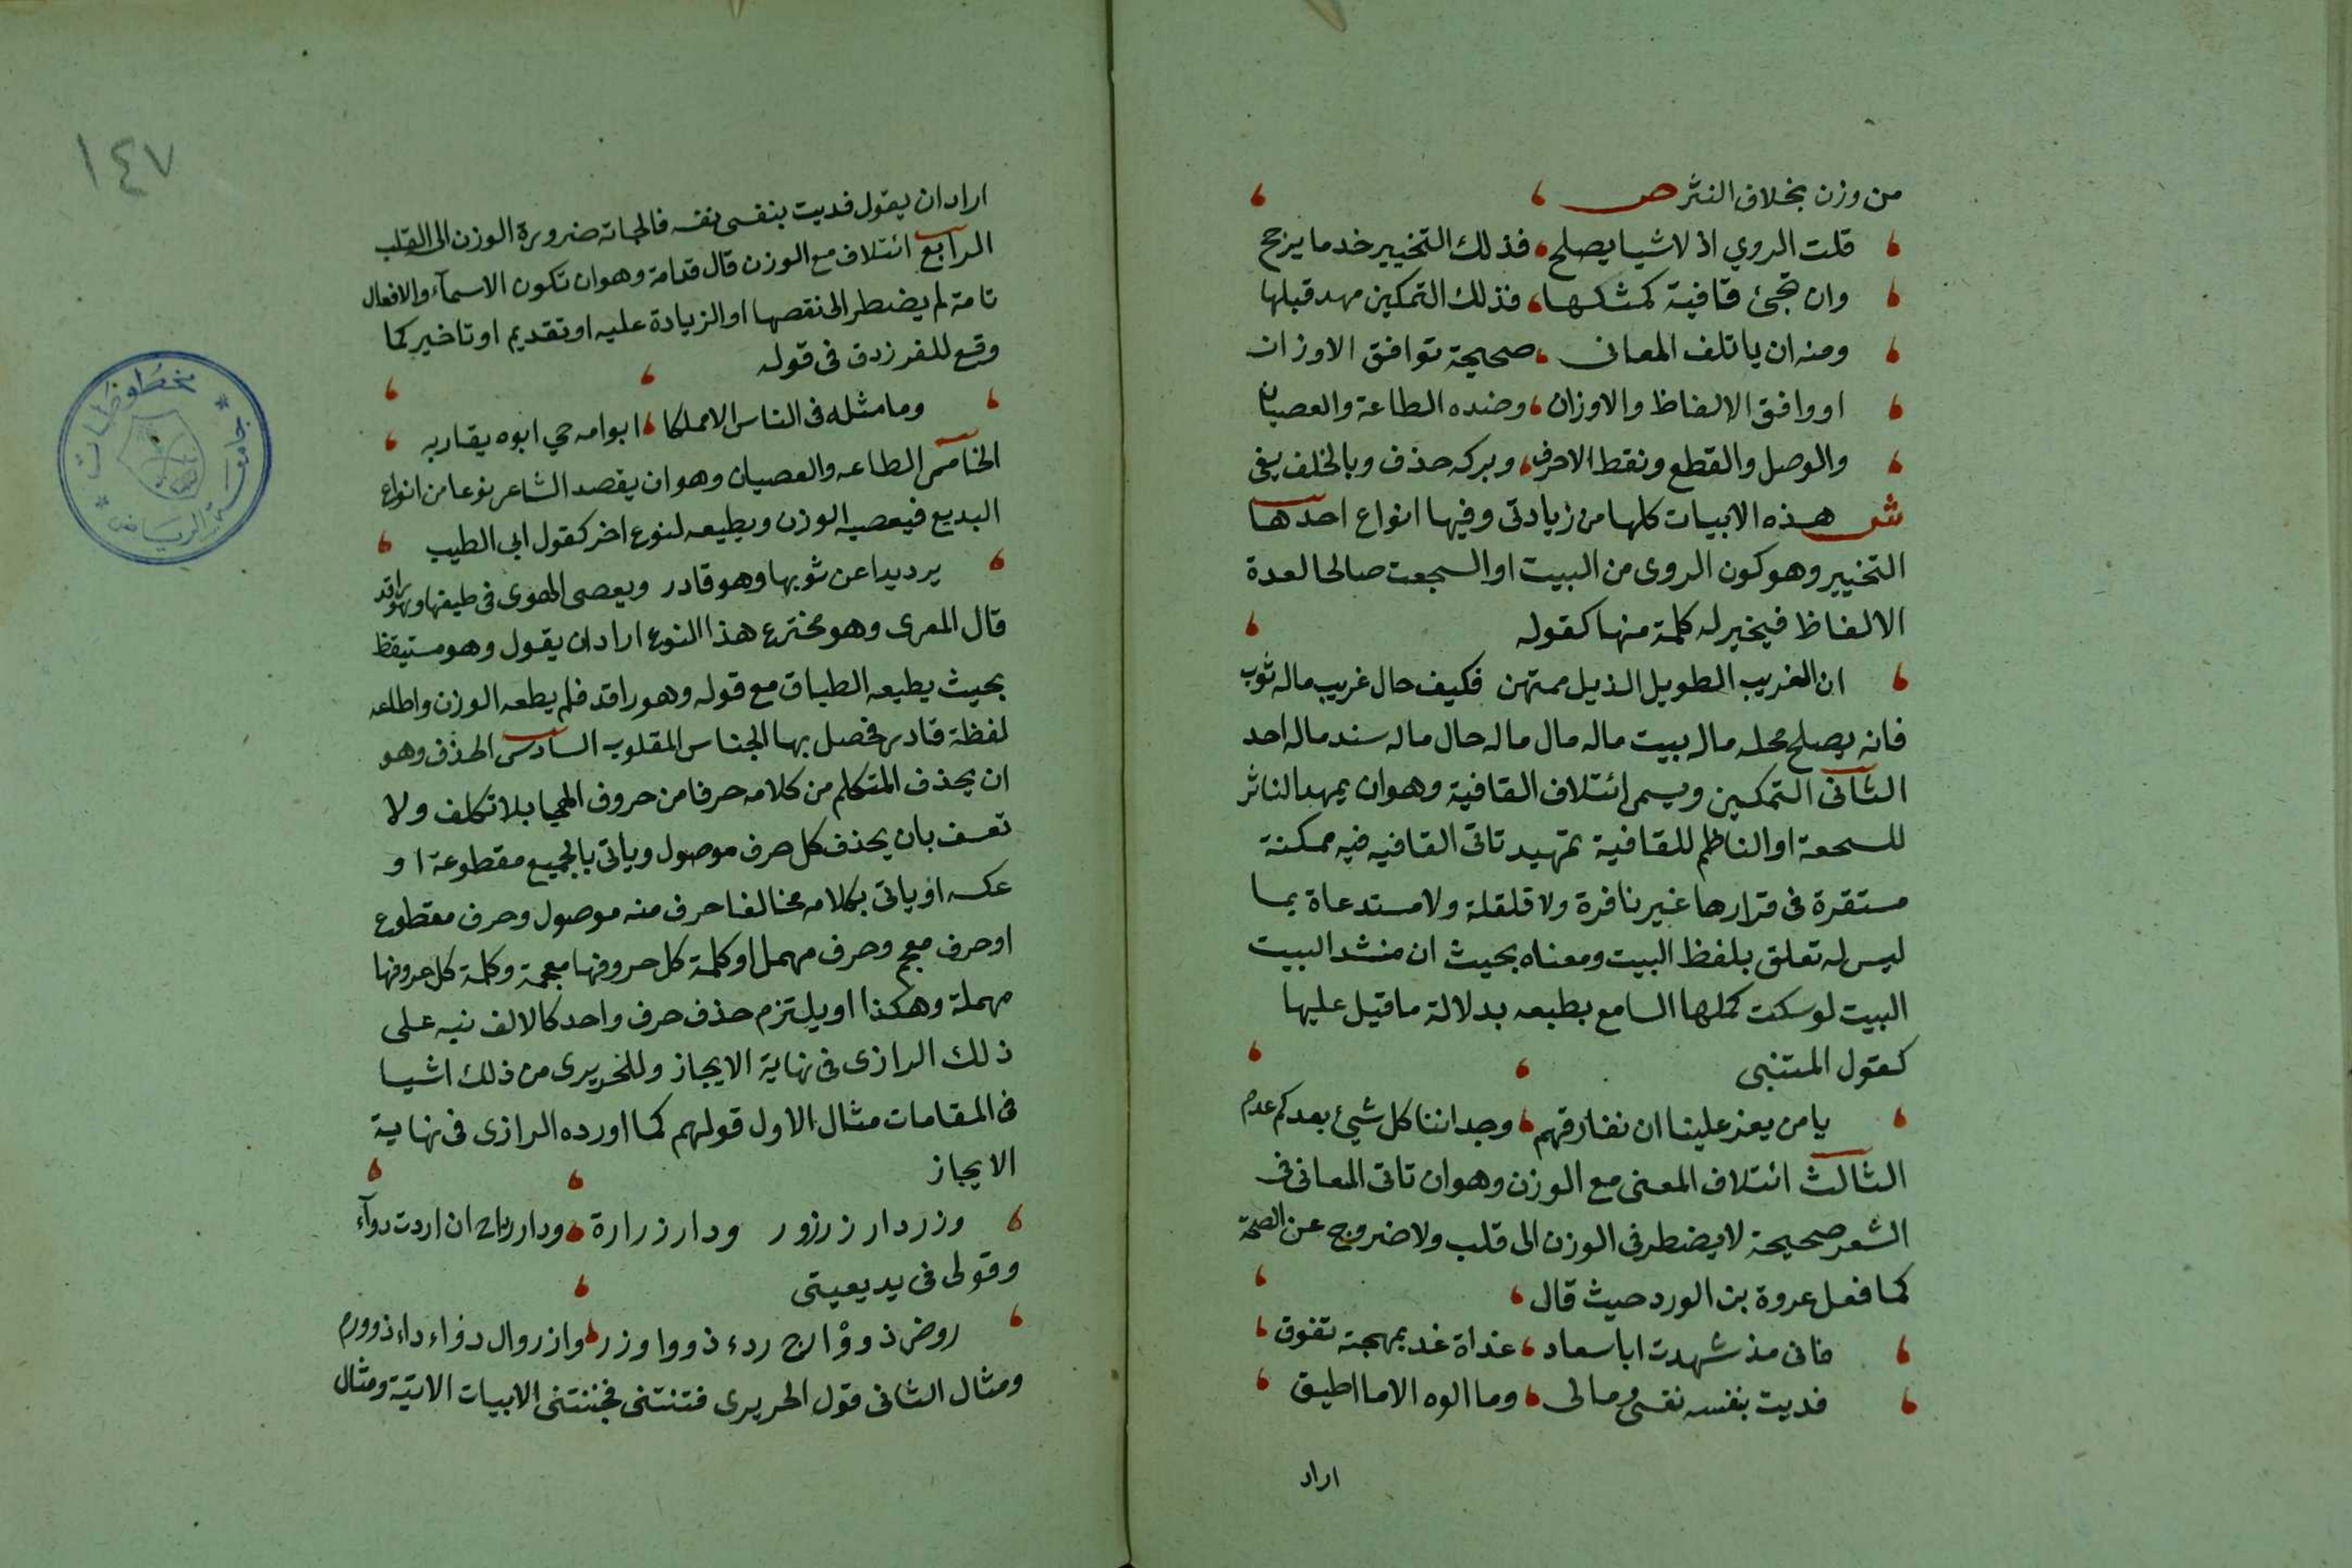 من وزن بخلاف النثر ص
قلت الروي اذ لاشيا يصلح فذلك التخيير خد ما يرجح
وان تجئ قافية كمثكها فذلك التمكين مهد قبلها
ومنه ان ياتلف المعانى صحيحة توافق الاوزان
او وافق الالفاظ والاوزان وضده الطاعة والعصيان
والوصل والقطع ونقط الاحرف وبركه حذف وبالخلف يفى
ش هذه الابيات كلها من زيادتى وفيها انواع احدها
التخيير وهو كون الروى من البيت او السجعت صالحا لعدة
الالفاظ فيخير له كلمة منها كقوله
ان الغريب الطويل الذيل ممتهن فكيف حال غريب ماله ثوب
فانه يصلح محله ماله بيت ماله مال ماله حال ماله سند ماله احد
الثانى التمكين ويسمى ائتلاف القافية وهو ان يمهد الناثر
للسجعة او الناظم للقافية تمهيد تاتى القافيه فيه ممكنة
مستقرة فى قرارها غير نافرة ولا قلقلة ولا مستدعاة بما
ليس له تعلق بلفظ البيت ومعناه بحيث ان منشد البيت
البيت لو سكت كملها السامع بطبعه بدلالة ما قيل عليها
كقول المتنبى
يا من يعز علينا ان نفارقهم وجداننا كل شيئ بعدكم عدم
الثالث ائتلاف المعنى مع الوزن وهو ان تاتى المعانى فى
الشعر صحيحة لا يضطر فى الوزن الى قلب ولا خروج عن الصحة
كما فعل عروة بن الورد حيث قال
فانى مذ شهدت ابا سعاد غداة غد بمهجته تفوق
فديت بنفسه نفسى ومالى وما الوه الا ما اطيق
اراد
١٤٧
اراد ان يقول فديت بنفسى نفسه فالجاته ضرورة الوزن الى القلب
الرابع ائتلاف مع الوزن قال قدامة وهو ان تكون الاسمآء والافعال
تامة لم يضطر الى نقصها او الزيادة عليه او تقديم او تاخير كما
وقع للفرزدق فى قوله
وما مثله فى الناس الا مملكا ابو امه حي ابوه يقاربه
الخامس الطاعه والعصيان وهو ان يقصد الشاعر نوعا من انواع
البديع فيعصيه الوزن ويطيعه لنوع اخر كقول ابي الطيب
يرد يدا عن ثوبها وهو قادر ويعصى الهوى فى طيفها وهو راقد
قال المعرى وهو مخترع هذا النوع اراد ان يقول وهو مستيقظ
بحيث يطيعه الطباق مع قوله وهو راقد فلم يطعه الوزن واطاعه
لفظة قادر فحصل بها الجناس المقلوب السادس الحذف وهو
ان يحذف المتكلم من كلامه حرفا من حروف الهجا بلا تكلف ولا
تعسف بان يحذف كل حرف موصول وياتى بالجميع مقطوعة او
عكسه او ياتى بكلامه مخالفا حرف منه موصول وحرف مقطوع
او حرف معجم وحرف مهمل او كلمة كل حروفها معجمة وكلمة كل حروفها
مهملة وهكذا او يلتزم حذف حرف واحد كالالف نبه على
ذلك الرازى فى نهاية الايجاز وللحريرى من ذلك اشيا
فى المقامات مثال الاول قولهم كما اورده الرازى فى نهاية
الايجاز
وزر دار زرزور ودار زرارة ودار رداح ان اردت دوآء
وقولى فى بديعيتى
روض ذووْا ارج ردء ذووا وزر وازر وال دواء داء ذو ورم
ومثال الثانى قول الحريرى فتنتنى فجننتنى الابيات الاتية ومثال
جامعة الرياض
مخطوطات